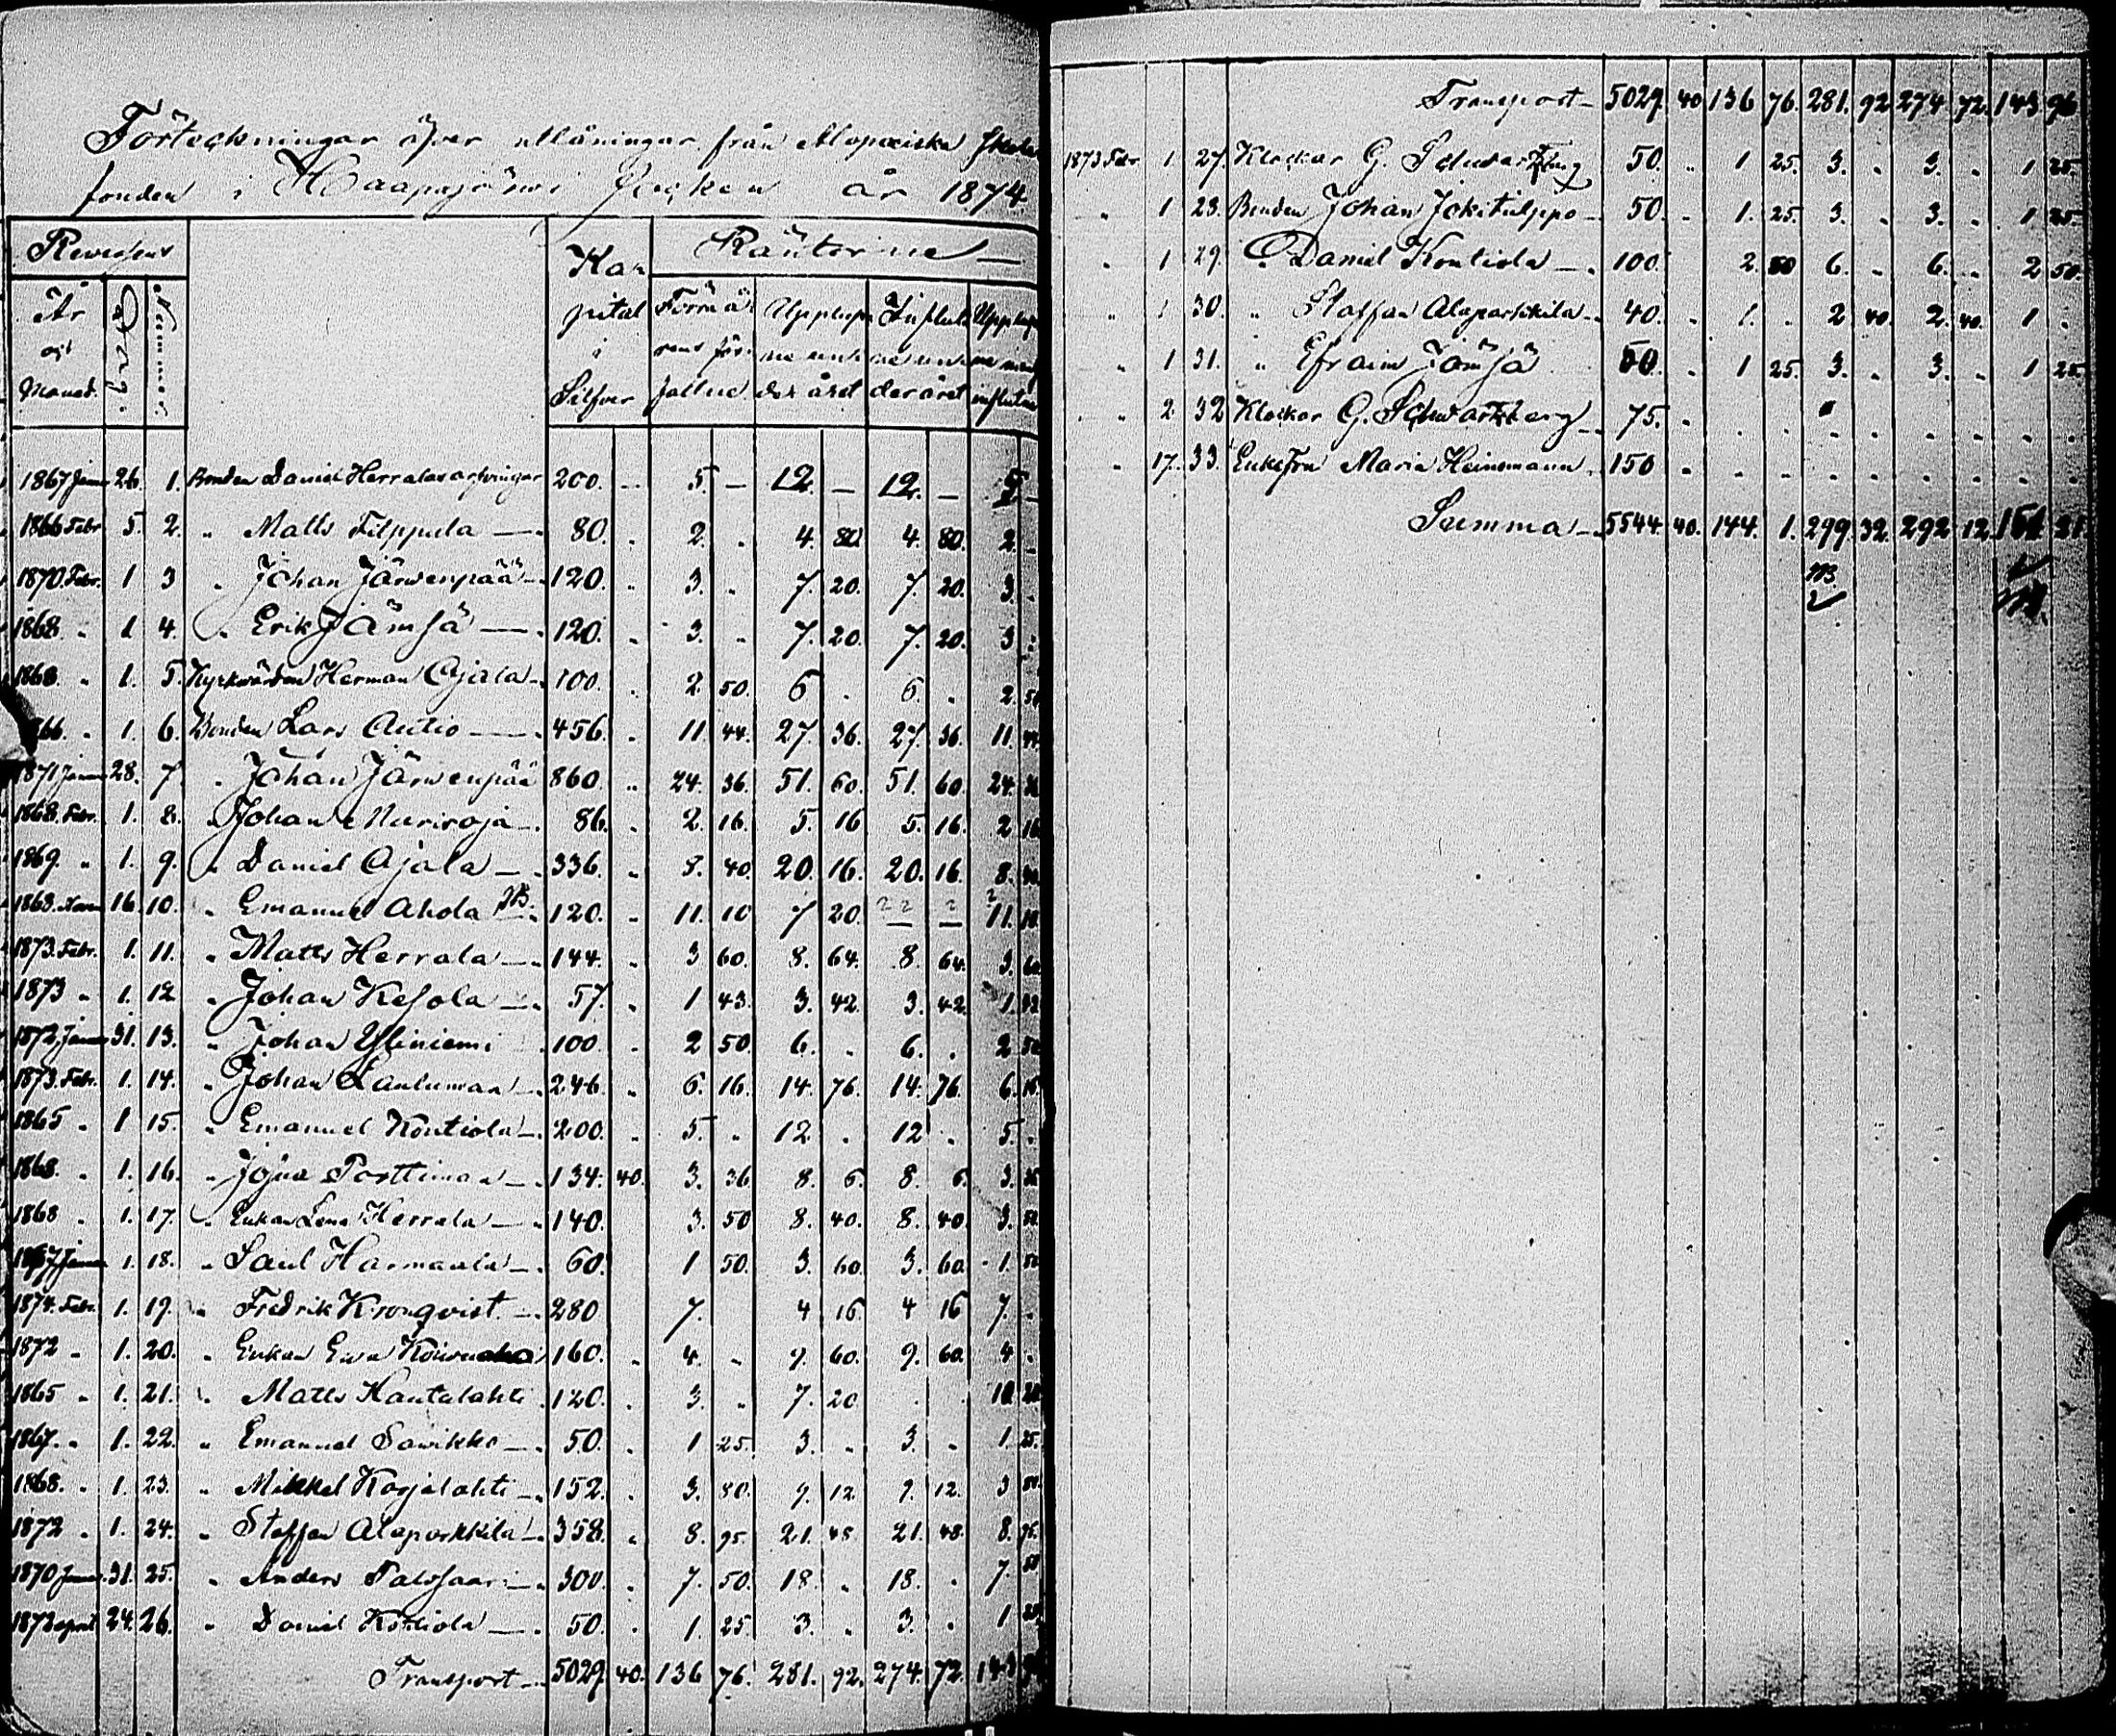 Förteckningar öfver utlåningar från Alopæiska skole
fonden i Haapajärvi Socken år 1874
Reversens
Kapital i Silfver
Räntorne
År och Månad.
Dag.
Nummer.
Förra årens förfallne
Upplupne under året
Influtne under året
Upplupne men ej influtne
1867 Janu 26. 1. Bonden Daniel Herralas arfvingar 200. — 5. — 12. — 12. — 5 —
1866 Febr 5. 2. " Matts Filppula — 80. " 2. " 4. 80 4. 80. 2. "
1870. Febr. 1 3 " Johan Järwenpää — 120. " 3. " 7. 20. 7. 20. 3. "
1868 " 1 4. " Erik Jämsä — 120. " 3. " 7. 20. 7. 20. 3 "
1868. " 1. 5. Kyrkvärden Herman Ojala — 100. " 2 50. 6 . 6. " 2. 50
66. " 1. 6. Bonden Lars Autio — 456. " 11 44. 27. 36. 27. 36. 11. 44
1871 Janu 28. 7. " Johan Järwenpää 860. " 24. 36. 51. 60. 51. 60. 24. 36
1868. Febr. 1. 8. " Johan Muriroja — 86. " 2. 16. 5. 16 5. 16. 2 16
1869. " 1. 9. " Daniel Ojala — 336. " 8. 40. 20. 16. 20. 16. 8. 40
1863. 16. 10. " Emanuel Ahola NB. 120. " 11. 10 7 20. — — 11. 10
1873. Febr. 1. 11. " Matts Herrala — 144. " 3 60. 8. 64. 8. 64. 3. 60
1873 " 1. 12. " Johan Kesola — 57. " 1 43. 3. 42. 3. 42. 1.
1872 Janu 31. 13. " Johan Yliniemi 100. " 2 50. 6. . 6. . 2 50
1873. Febr. 1. 14. " Johan Lauluman — 246. " 6. 16. 14. 76. 14. 76. 6. 16
1865 " 1 15. " Emanuel Kontiola — 200. " 5. " 12. . 12 . 5. .
1868. " 1. 16. " Jojua Porttiman — 134. 40. 3. 36 8. 6. 8. 6. 3. 36
1868 " 1. 17. " Enkan Lena Herrala — 140. 3. 50 8. 40. 8. 40. 3. 50
1867 Janu 1. 18. " Saul Harmaala — 60. 1 50. 3. 60. 3. 60. 1. 50
1874. Febr. 1. 19. " Fredrik Kronqvist. — 280 7. 4 16 4 16 7. .
1872 " 1. 20. " Enkan Ewa Koivuaho 160. " 4. " 9. 60. 9. 60. 4 .
1865 " 1. 21. " Matts Kautalahti 120. " 3. " 7. 20 . . 10 20
1867. " 1. 22. " Emanuel Sawikko — 50. " 1 25. 3. " 3. " 1. 25.
1868. " 1. 23. " Mikkel Karjalahti — 152. " 3. 80. 9. 12. 9. 12. 3 80
1872 " 1. 24. " Staffan Alaparkkila — 358. " 8. 95. 21. 48. 21. 48. 8. 95.
1870 Janu. 31. 25. " Anders Palosaari — 300. . 7. 50. 18. . 18. . 7. 50
1872 april 24. 26. " Daniel Kotiola — 50. . 1. 25. 3. . 3. . 1 25
Transport — 5029. 40. 136 76. 281. 92. 274. 72. 143
Transport — 5029. 40 136 76. 281. 92. 274. 72. 143. 96
1873 Febr 1 27. Klockar G. Schwartzberg 50. " 1 25. 3. " 3. " 1 25.
" 1 28. Bonden Johan Jokitulppo — 50. " 1. 25. 3. " 3. " 1 25.
" 1 29. D. Daniel Kontiola — 100. 2. 50 6. " 6. " 2 50.
" 1 30. " Staffan Alaparkkila — 40. " 1. . 2 40. 2. 40. 1 .
" 1 31. " Efraim Jämsä 50. . 1 25. 3. " 3. . 1 25.
" 2 32 Klockar G. Schwartzberg — 75. " . . . . . . . .
" 17. 33. Enkefru Maria Heinemann. 150 " . . . . . . . .
Summa — 5544. 40. 144. 1. 299. 32. 292. 12. 151. 21.